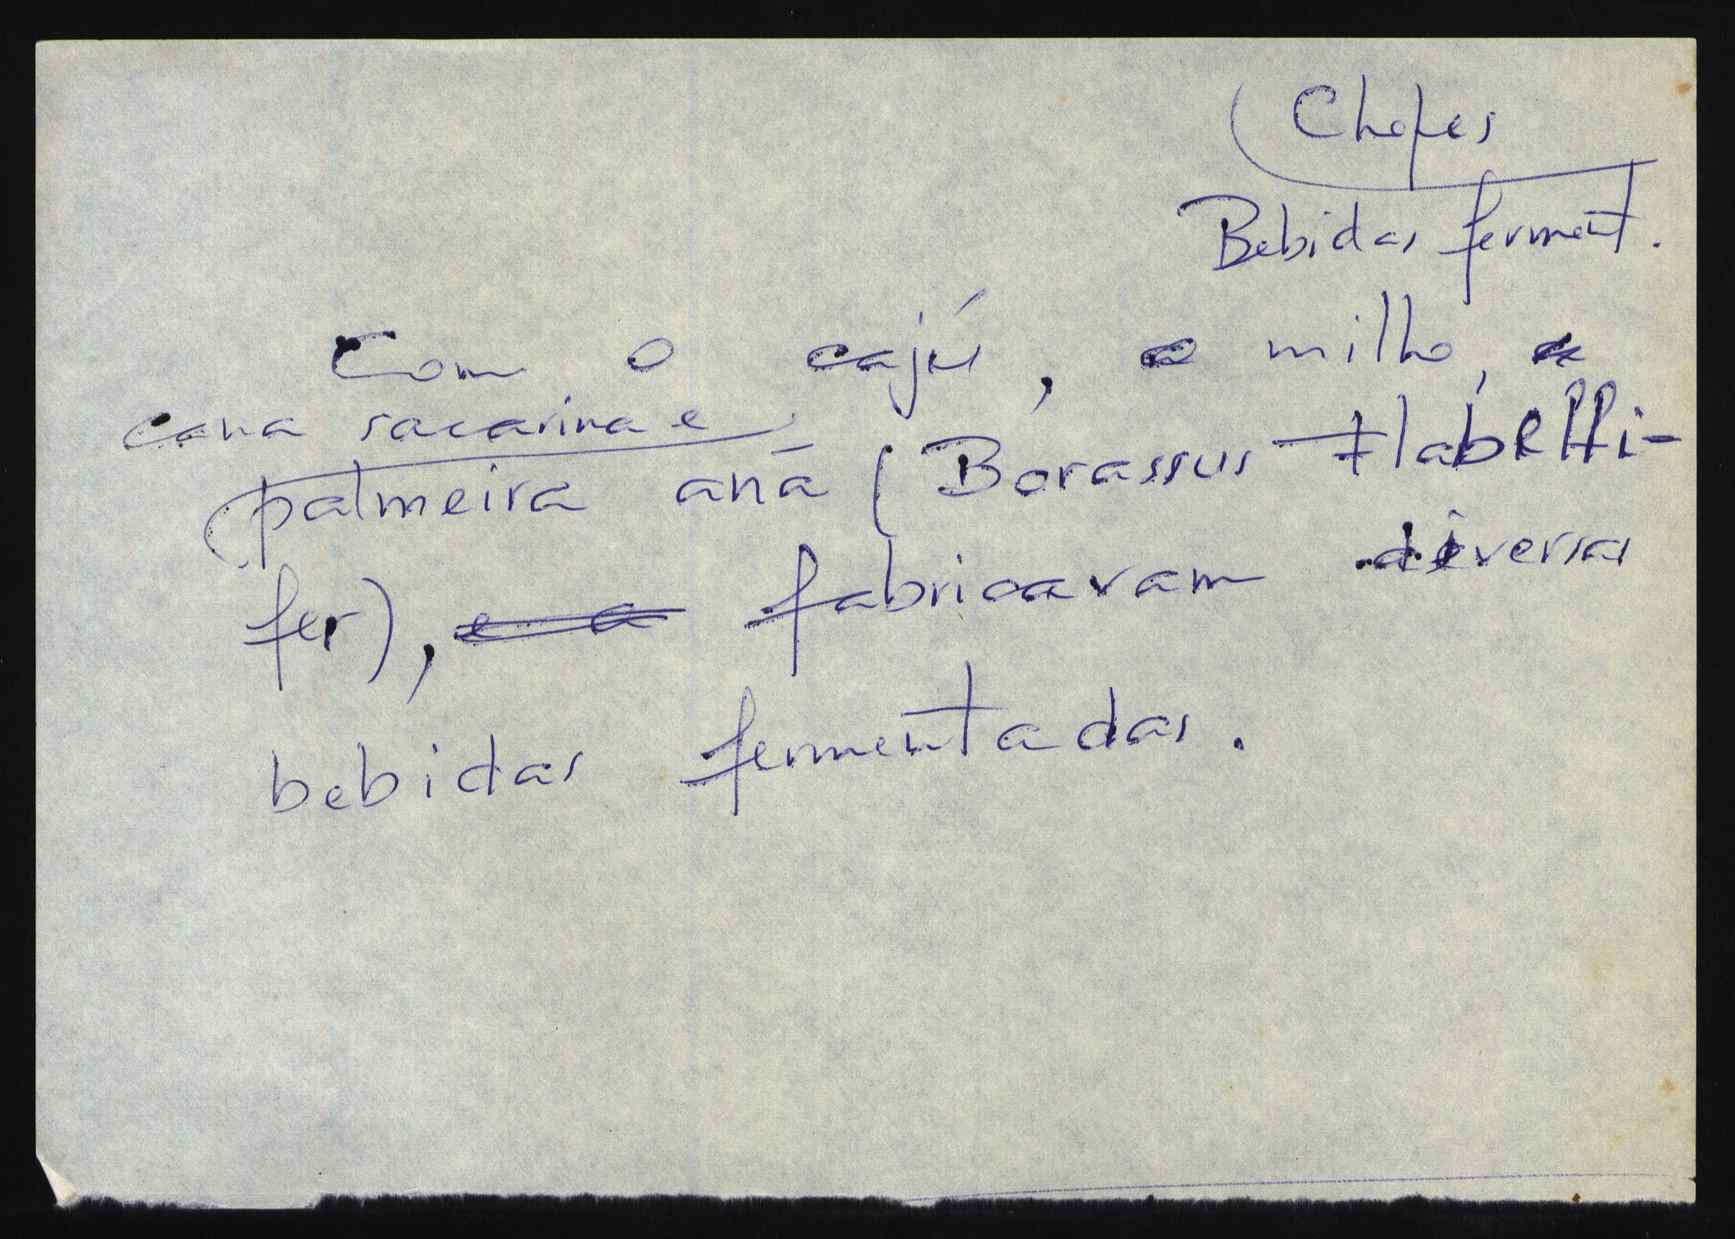 Chopes
Bebidas ferment.
Com o cajú, o milho, a
cana sacarina e
palmeira anã (Borassus Flabelli-
fer), e a fabricavam diversas
bebidas fermentadas.